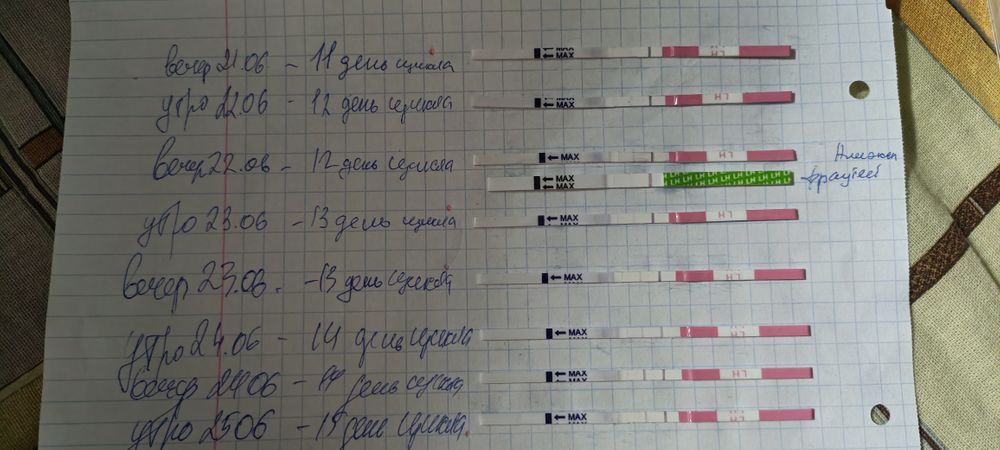 вечер 21.06 - 11 день цикла ← MAX ← MAX LH
утро 22.06 - 12 день цикла ← MAX ← MAX LH
вечер 22.06 - 12 день цикла ← MAX LH
← MAX ← MAX LH LH LH LH LH LH фраутест
утро 23.06 - 13 день цикла ← MAX LH
вечер 23.06. - 13 день цикла ← MAX LH
утро 24.06 - 14 день цикла ← MAX LH
вечер 24.06 - 14 день цикла ← MAX LH
утро 25.06 - 15 день цикла. ← MAX LH